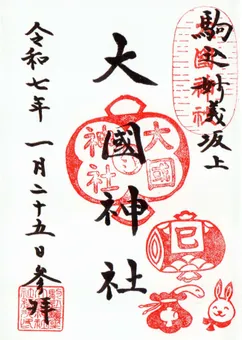 駒込妙義坂上
大國神社
大國
神社
巳
令和七年 一月二十五日参拝